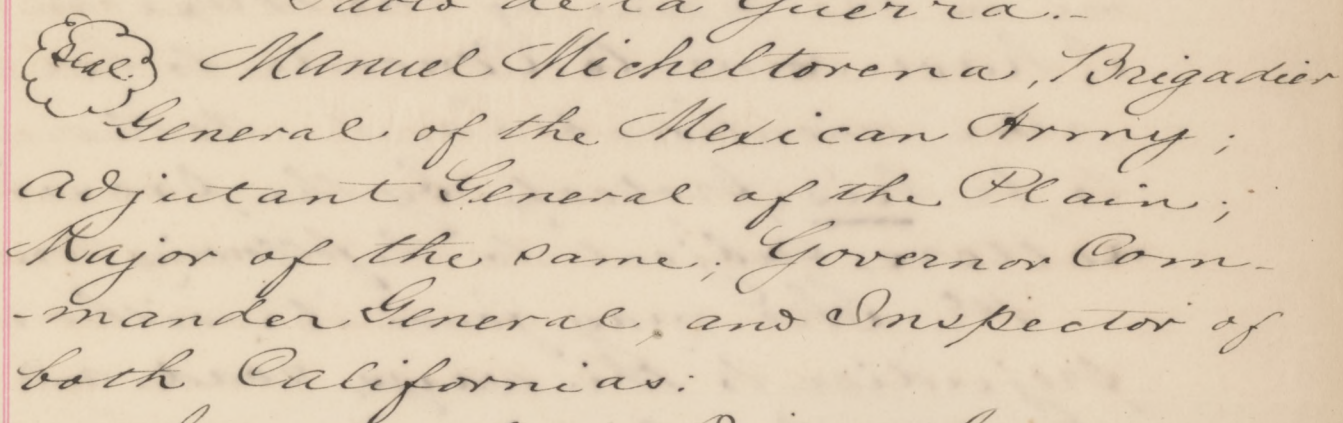 Pablo de la Guerra.-
Seal. Manuel Micheltorena, Brigadier
General of the Mexican Army;
Adjutant General of the Plain;
Major of the same; Governor Com-
-mander General, and Inspector of
both Californias: